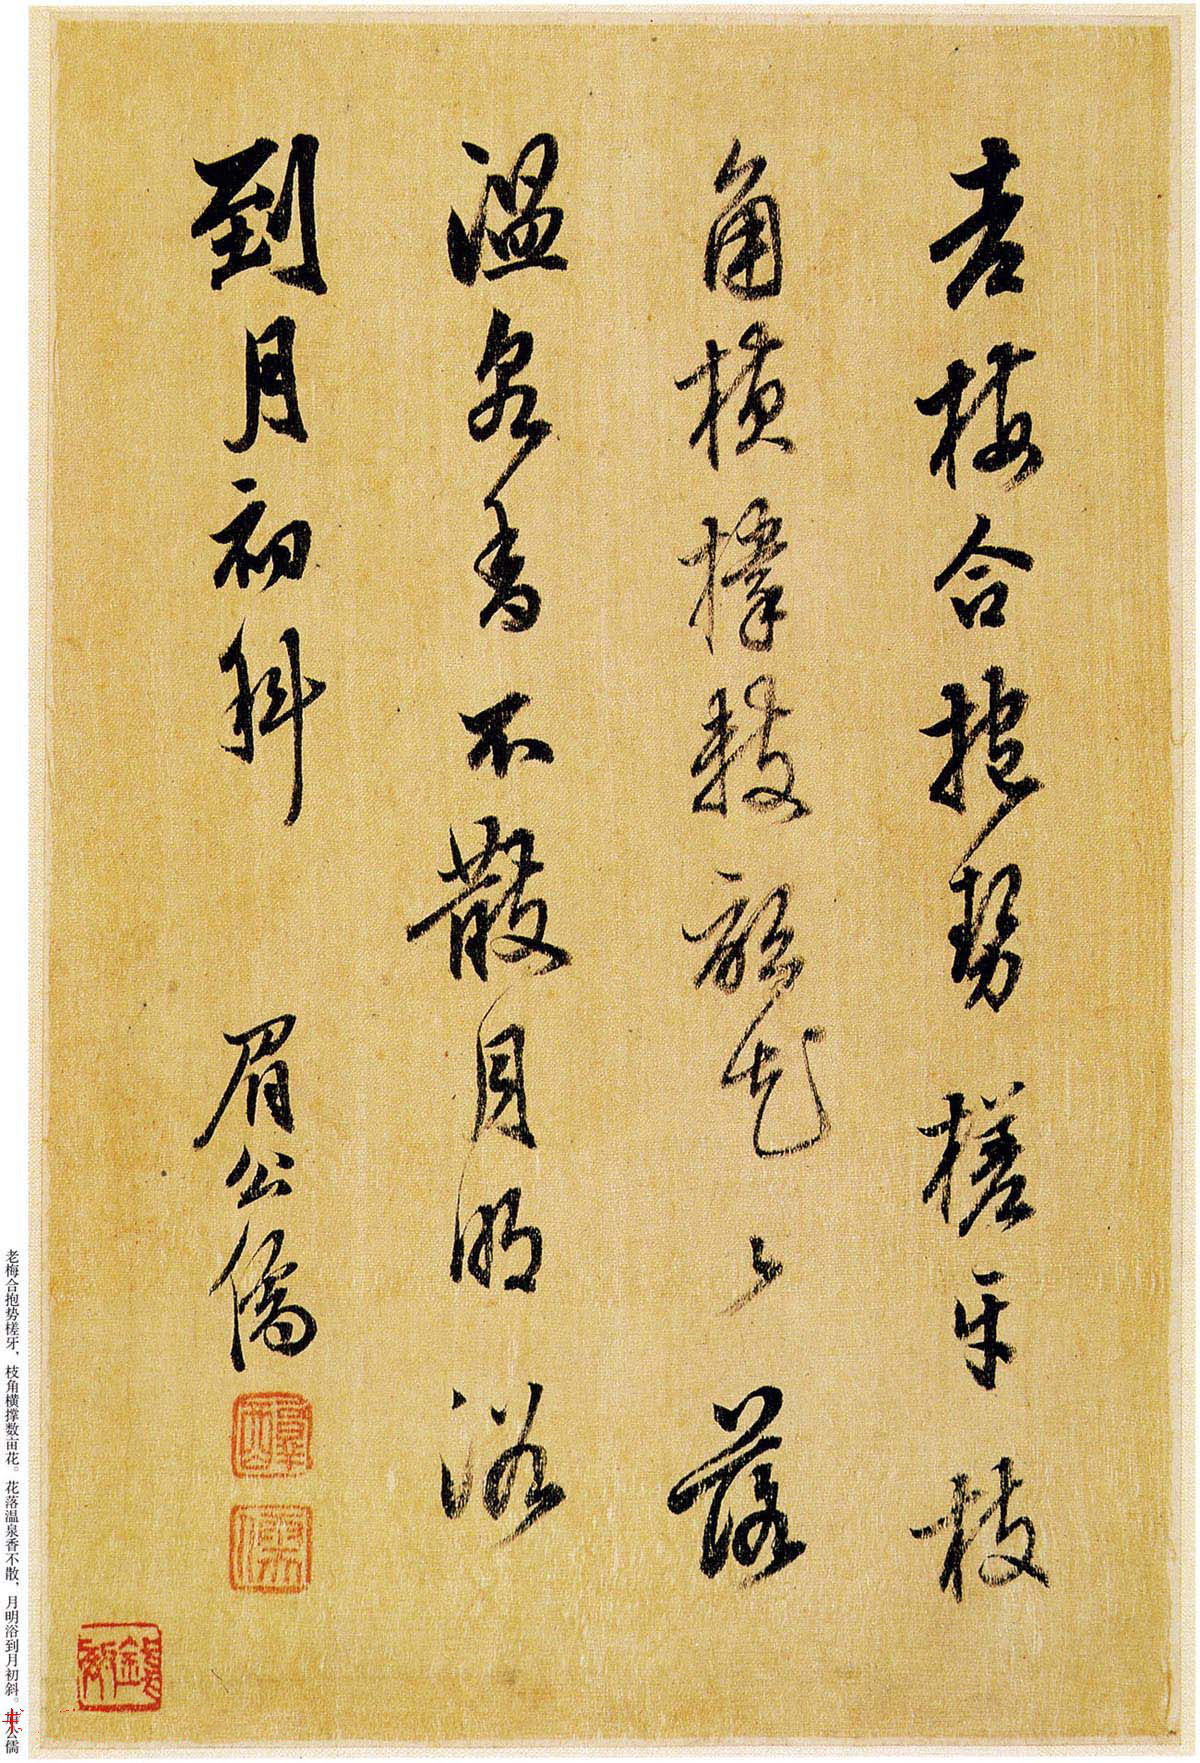 老梅合抱勢槎牙枝
角橫撑數畝花〻落
溫泉香不散月明浴
到月初斜
眉公儒
老梅合抱势槎牙，枝角横撑数亩花。花落温泉香不散，月明浴到月初斜。眉公儒